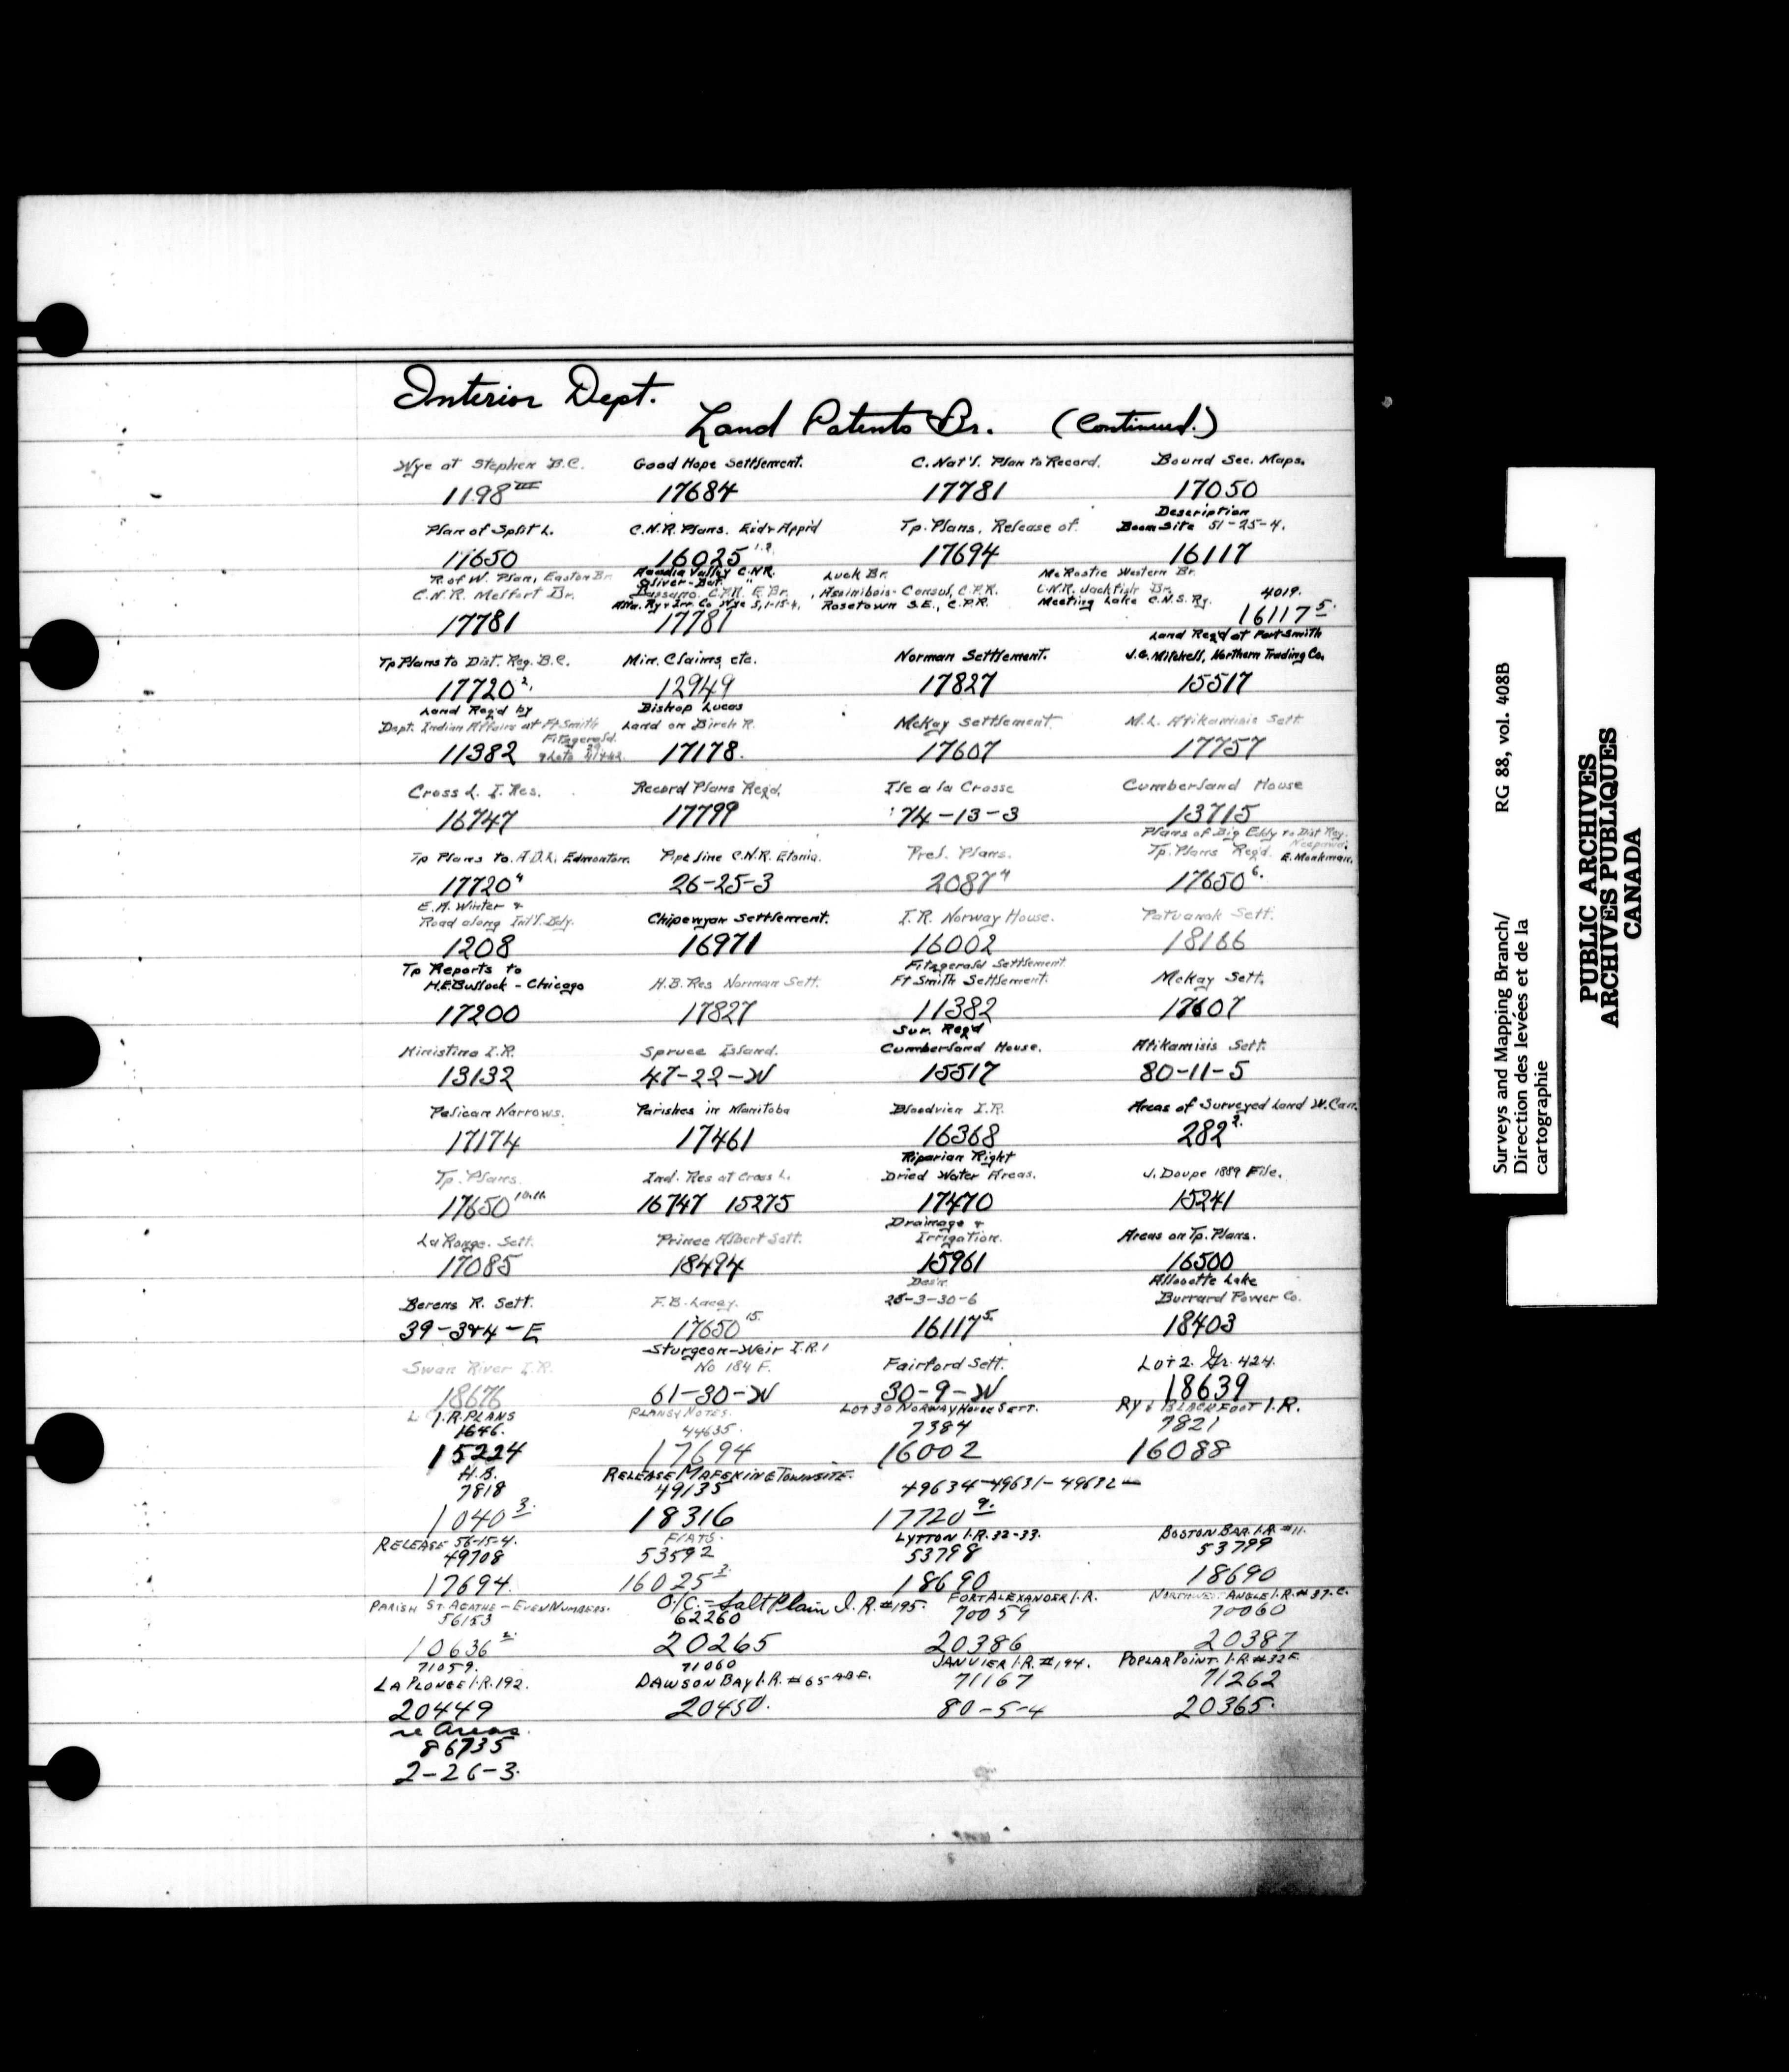 Interior Dept.
Land Patents Br. (Continued.)
Wye at Stephen B.C. Good Hope Settlement. C. Nat'l. Plan to Record. Bound Sec. Maps.
1198 III 17684 17781 17050
Description
Plan of Split L. C.N.R. Plans. Exd & App'd Tp. Plans, Release of. Boom Site 51-25-4.
17650 16025 1.2. 17694 16117
R. of W. Plan, Easton Br. Acadia Valley C.N.R. Luck Br. McRostie Western Br.
Oliver-But. "
C.N.R. Melfort Br. Bassano. C.P.R. E. Br. , Assiniboia-Consul, C.P.R. C.N.R. Jackfish Br. 4019.
Alta. Ry & Irr. Co Wye 5,1-15-4. Rosetown S.E., C.P.R. Meeting Lake C.N.S. Ry.
17781 17781 16117 5.
Land Req'd at Fort Smith
Tp Plans to Dist. Reg. B.C. Min. Claims, etc. Norman Settlement. J.G. Mitchell, Northern Trading Co.
17720 2. 12949 17827 15517
Land Req'd by Bishop Lucas
Dept. Indian Affairs at Ft Smith Land on Birch R. McKay Settlement. M.L. Atikamisis Sett.
Fitzgerald.
11382 17178. 17607 17757
Cross L. I. Res. Record Plans Req'd. Ile a la Crosse Cumberland House
16747 17799 74-13-3 13715
Plans of Big Eddy to Dist Reg. Neepawa.
Tp Plans to A.D.L. Edmonton. Pipe line C.N.R. Etonia. Prel. Plans. Tp. Plans Req'd. E. Monkman.
17720 4 26-25-3 2087 4 17650 6.
E.A. Winter &
Road along Int'l. Bdy. Chipewyan Settlement. I.R. Norway House. Patuanak Sett.
1208 16971 16002 18166
Tp Reports to Fitzgerald Settlement.
H.E. Bullock - Chicago H.B. Res Norman Sett. Ft Smith Settlement. McKay Sett.
17200 17827 11382 17607
Sur. Req'd
Kinistino I.R. Spruce Island. Cumberland House. Atikamisis Sett.
13132 47-22-W 15517 80-11-5
Pelican Narrows. Parishes in Manitoba Bloodvien I.R. Areas of Surveyed Land W. Can.
17174 17461 16368 282 2.
Riparian Right
Tp. Plans. Ind. Res at Cross L. Dried Water Areas. J. Doupe 1889 File.
17650 10.11. 16747 15275 17470 15241
Drainage &
La Ronge. Sett. Prince Albert Sett. Irrigation. Areas on Tp. Plans.
17085 18494 15961 16500
Des'n. Allouette Lake
Berens R. Sett. F.B. Lacey. 26-3-30-6 Burrard Power Co.
39-3&4-E 17650 15. 16117 5. 18403
Sturgeon-Weir I.R.
Swan River I.R. No 184 F. Fairford Sett. Lot 2. Gr. 424.
18676 61-30-W 30-9-W 18639
I.R. PLANS PLANS & NOTES. LOT 30 NORWAY HOUSE SETT. RY & BLACKFOOT I.R.
1646. 44635. 7384 7821
15224 17694 16002 16088
H.B. RELEASE MAFEKING TOWNSITE.
7818 49135 49634-49631-49632-
1040 3. 18316 17720 9.
RELEASE 56-15-4. FIATS. LYTTON I.R. 32-33. BOSTON BAR. I.R. #11.
49708 53592 53798 53799
17694. 16025 3. 18690 18690
PARISH ST. AGATHE - EVEN NUMBERS. O/C. - Salt Plain I.R. #195. FORT ALEXANDER I.R. NORTHWEST ANGLE I.R. #37.C.
56153 62260 70059 70060
10636 2. 20265 20386 20387
71059. 71060 JANVIER I.R. #194. POPLAR POINT. I.R. #32F.
LA PLONGE I.R. 192. DAWSON BAY I.R. #65 ABF. 71167 71262
20449 20450. 80-5-4 20365.
re Areas.
86735
2-26-3.
Surveys and Mapping Branch/ RG 88, vol. 408B
Direction des levées et de la
cartographie
PUBLIC ARCHIVES
ARCHIVES PUBLIQUES
CANADA